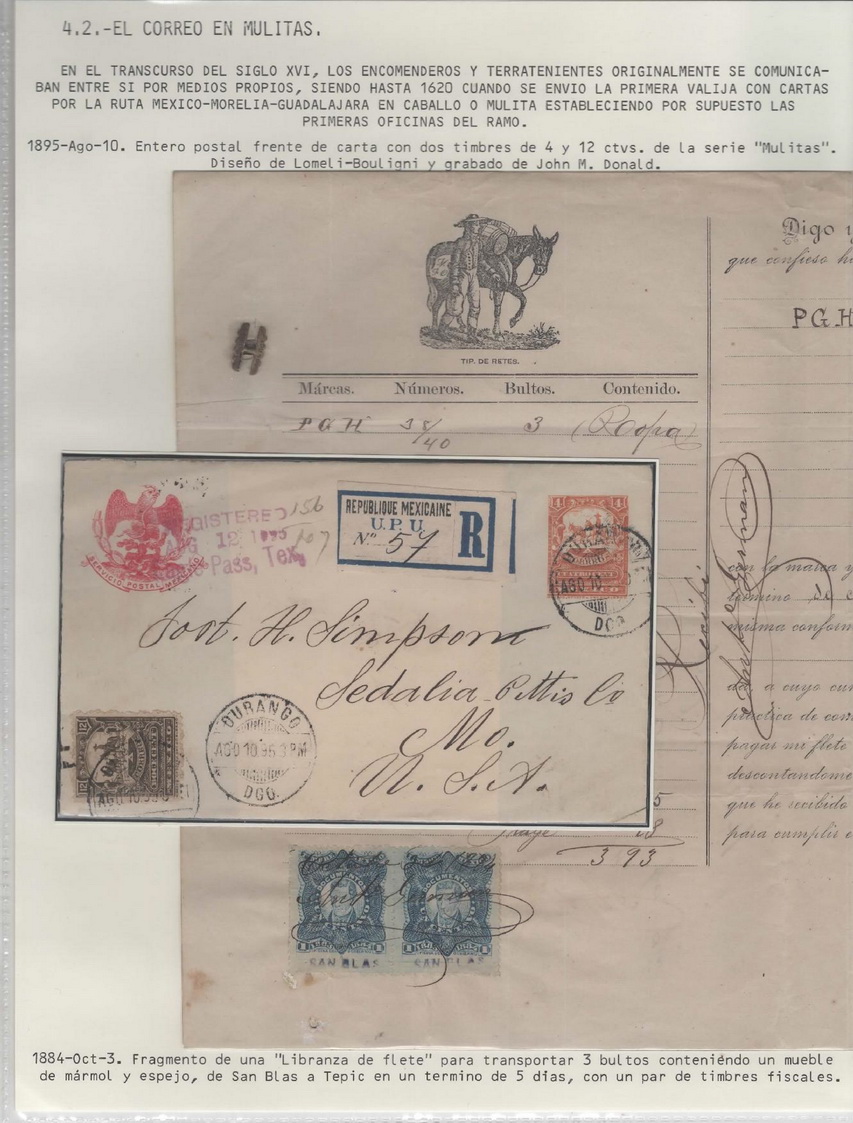 4.2.-EL CORREO EN MULITAS.
EN EL TRANSCURSO DEL SIGLO XVI, LOS ENCOMENDEROS Y TERRATENIENTES ORIGINALMENTE SE COMUNICA-
BAN ENTRE SI POR MEDIOS PROPIOS, SIENDO HASTA 1620 CUANDO SE ENVIO LA PRIMERA VALIJA CON CARTAS
POR LA RUTA MEXICO-MORELIA-GUADALAJARA EN CABALLO O MULITA ESTABLECIENDO POR SUPUESTO LAS
PRIMERAS OFICINAS DEL RAMO.
1895-Ago-10. Entero postal frente de carta con dos timbres de 4 y 12 ctvs. de la serie "Mulitas".
Diseño de Lomeli-Bouligni y grabado de John M. Donald.
TIP. DE RETES.
Márcas. Números. Bultos. Contenido.
PGH 38/40 3 (Ropa)
Digo y
que confieso h
PGH
con la marca y
término de
misma conform
da, a cuyo cum
práctica de con
pagar mi flete
descontandome
que he recibido
para cumplir
Recibí
SERVICIO POSTAL MEXICANO
GISTERED
12 1895
Pass, Tex.
156
107
REPUBLIQUE MEXICAINE
U.P.U.
Nº 57
R
4 4
DURANGO
AGO 10
DGO.
Jost. H. Simpson
Sedalia Pettis Co
Mo.
U. S. A.
12
DURANGO
AGO 10 95 3 PM
DGO.
AGO 10 95
5
18
3 93
DOCUMENTOS DOCUMENTOS
SAN BLAS SAN BLAS
1884-Oct-3. Fragmento de una "Libranza de flete" para transportar 3 bultos conteniéndo un mueble
de mármol y espejo, de San Blas a Tepic en un termino de 5 días, con un par de timbres fiscales.